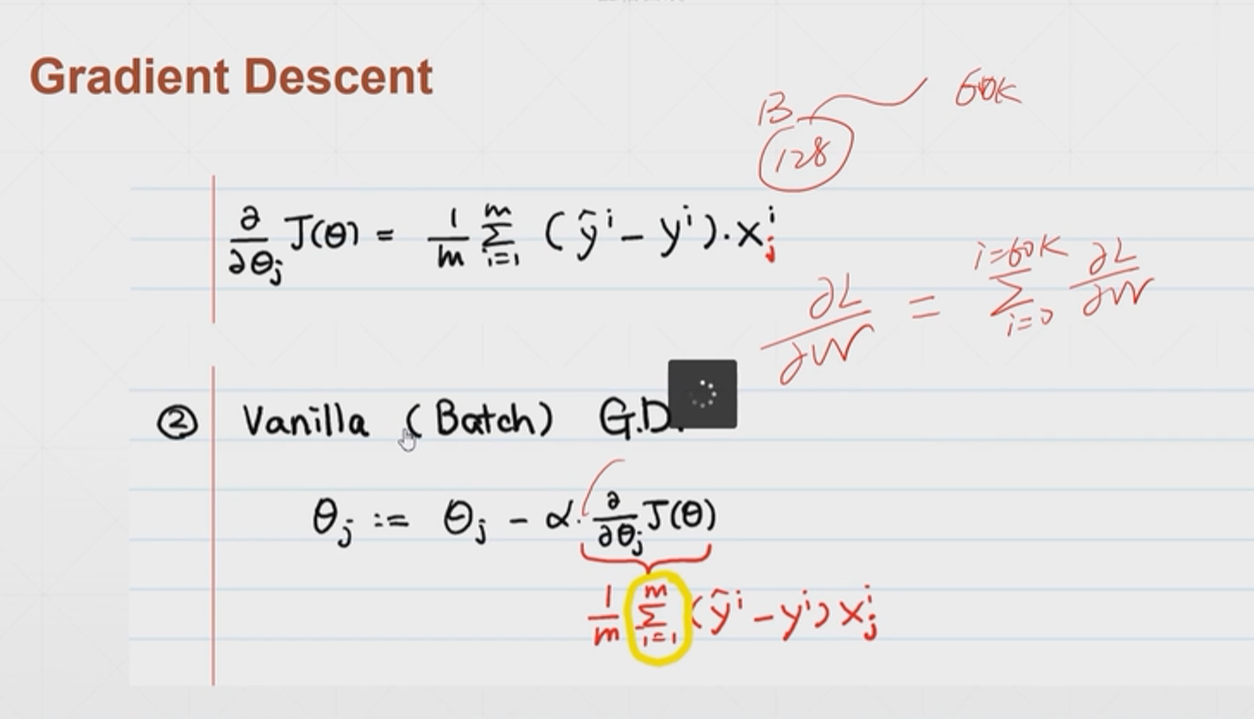 Gradient Descent
B 60K
128
∂/∂θj J(θ) = 1/m Σ(i=1, m) (ŷ^i − y^i)·x_j^i
∂L/∂W = Σ(i=0, i=60K) ∂L/∂W
② Vanilla (Batch) G.D.
θj := θj − α·∂/∂θj J(θ)
1/m Σ(i=1, m) (ŷ^i − y^i) x_j^i